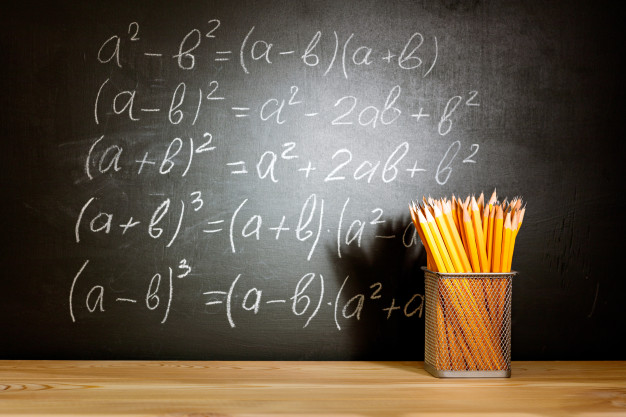 a² - b² = (a-b)(a+b)
(a-b)² = a² - 2ab + b²
(a+b)² = a² + 2ab + b²
(a+b)³ = (a+b)·(a² - a
(a-b)³ = (a-b)·(a² + a